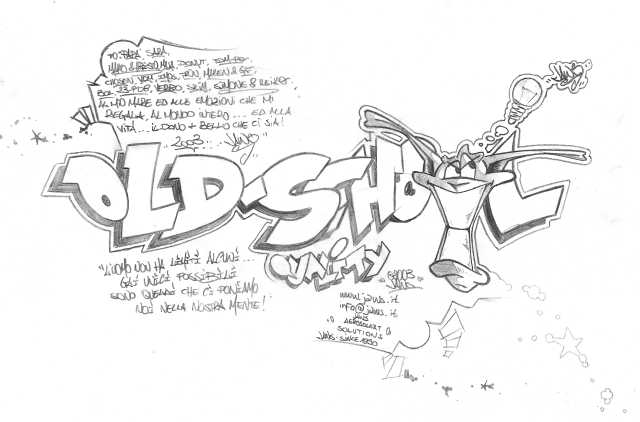 TO: PAPÀ, SARA,
DONUT,
CHOSEN, VEN, MAKEN & SE,
BOL, VERBO, SKIM, SIMONE &
AL MIO MARE ED ALLE EMOZIONI CHE MI
REGALA, AL MONDO INTERO.... ED ALLA
VITA... IL DONO + BELLO CHE CI SIA!
2003 JANS
JANS
OLD-SCHOOL
UNITY
"L'UOMO NON HA LIMITI ALCUNI...
GLI UNICI POSSIBILI
SONO QUELLI CHE CI PONIAMO
NOI NELLA NOSTRA MENTE!
©2003
JANS
www.jans.it
info@jans.it
JANS
AEROSOLART
SOLUTIONS
JANS SINCE 1990